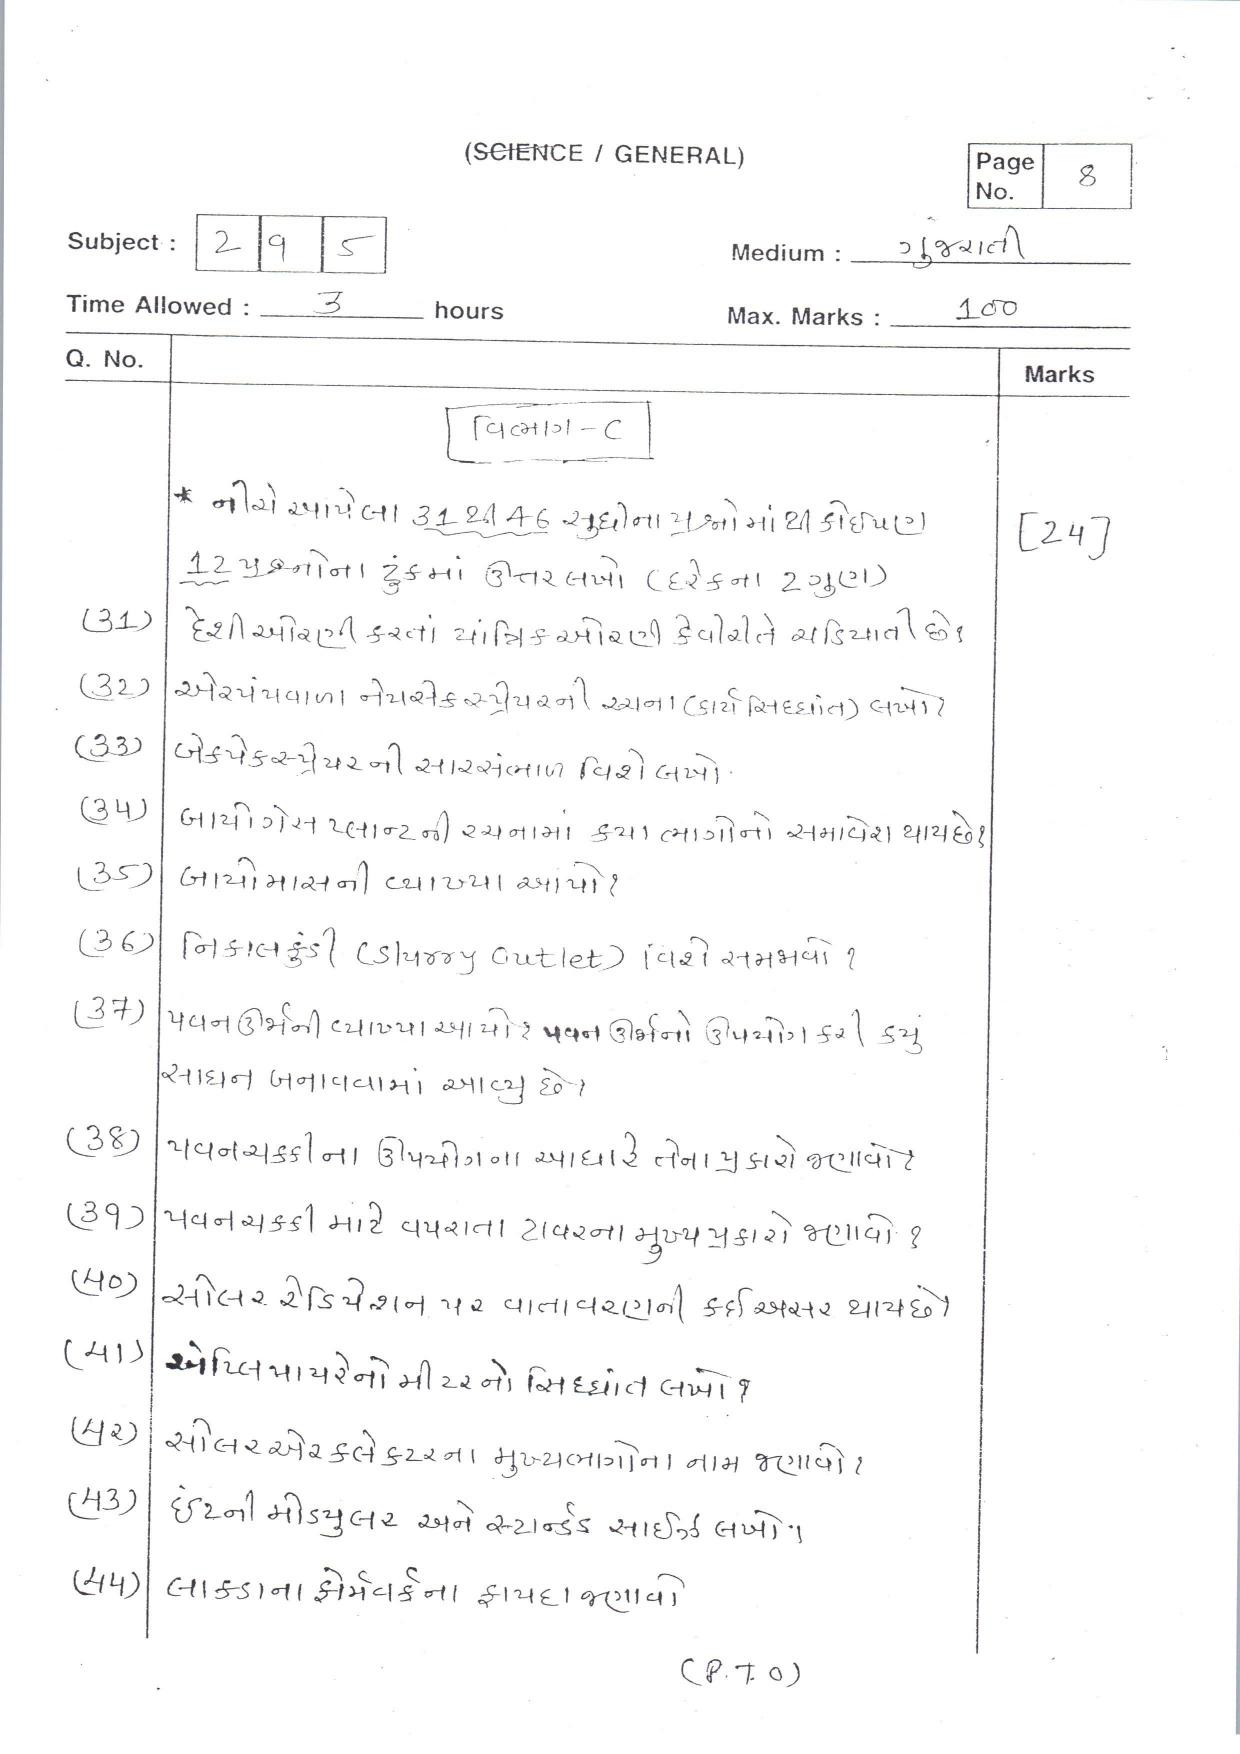 (SCIENCE / GENERAL)
Page No. 8
Subject : 295
Medium : ગુજરાતી
Time Allowed : 3 hours
Max. Marks : 100
Q. No.
Marks
વિભાગ - C
* નીચે આપેલા 31 થી 46 સુધીના પ્રશ્નોમાંથી કોઈપણ
[24]
12 પ્રશ્નોના ટુંકમાં ઊત્તર લખો (દરેકના 2 ગુણ)
(31) દેશી ઓરણી કરતાં યાંત્રિક ઓરણી કેવી રીતે ચડિયાતી છે?
(32) એરપંપવાળા નેપસેક સ્પ્રેયરની રચના (કાર્ય સિધ્ધાંત) લખો?
(33) બેકપેક સ્પ્રેયરની સારસંભાળ વિશે લખો.
(34) બાયોગેસ પ્લાન્ટની રચનામાં કયા ભાગોનો સમાવેશ થાય છે?
(35) બાયોમાસની વ્યાખ્યા આપો?
(36) નિકાલકુંડી (Slurry Outlet) વિશે સમજાવો ?
(37) પવનઊર્જાની વ્યાખ્યા આપો? પવન ઊર્જાનો ઊપયોગ કરી કયું
સાધન બનાવવામાં આવ્યુ છે?
(38) પવનચક્કીના ઊપયોગના આધારે તેના પ્રકારો જણાવો?
(39) પવનચક્કી માટે વપરાતા ટાવરના મુખ્ય પ્રકારો જણાવો ?
(40) સોલર રેડિયેશન પર વાતાવરણની કઈ અસર થાય છે?
(41) એપ્લિ પાયરેનોમીટરનો સિધ્ધાંત લખો?
(42) સોલર એર કલેકટરના મુખ્યભાગોના નામ જણાવો?
(43) ઈંટની મોડ્યુલર અને સ્ટાન્ડર્ડ સાઈઝ લખો?
(44) લાકડાના ફોર્મવર્કના ફાયદા જણાવો
(P.T.O)